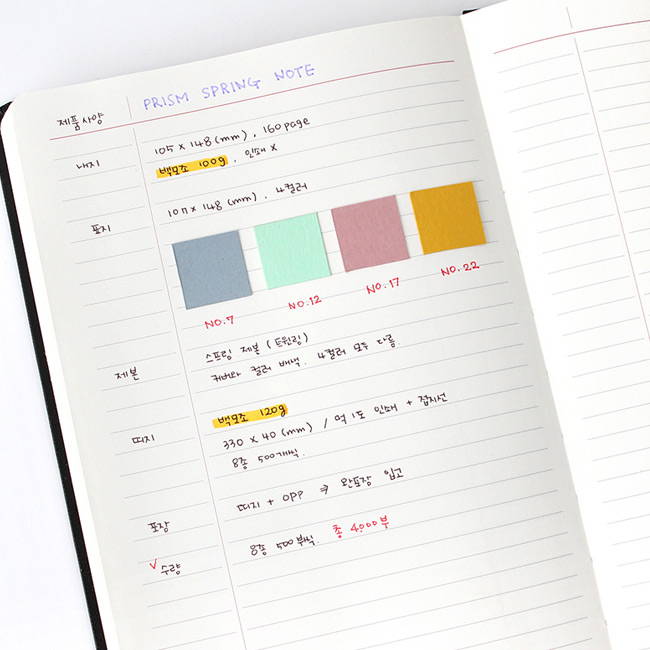 제품사양 PRISM SPRING NOTE
내지 105 x 148 (mm), 160page
백모조 100g, 인쇄 x
표지 107 x 148 (mm), 4컬러
NO.7 NO.12 NO.17 NO.22
제본 스프링 제본 (트윈링)
커버와 컬러 배색. 4컬러 모두 다름
띠지 백모조 120g
330 x 40 (mm) / 먹 1도 인쇄 + 접지선
8종 500개씩.
포장 띠지 + OPP ⇒ 완포장 입고
√ 수량 8종 500부씩. 총 4,000부